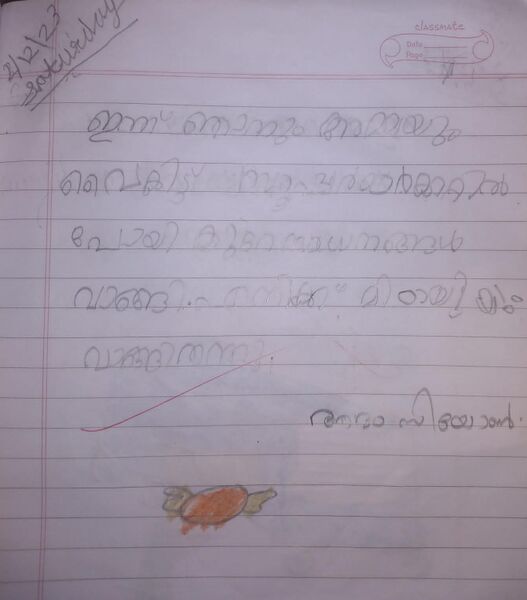 2/12/23
saturday
classmate
Date
Page
ഇന്ന് ഞാനും അമ്മയും
വൈകിട്ട് സൂപ്പർമാർക്കറ്റിൽ
പോയി കുറേ സാധനങ്ങൾ
വാങ്ങി. എനിക്ക് മിഠായിയും
വാങ്ങിതന്നു.
ആദം സിയോൺ.